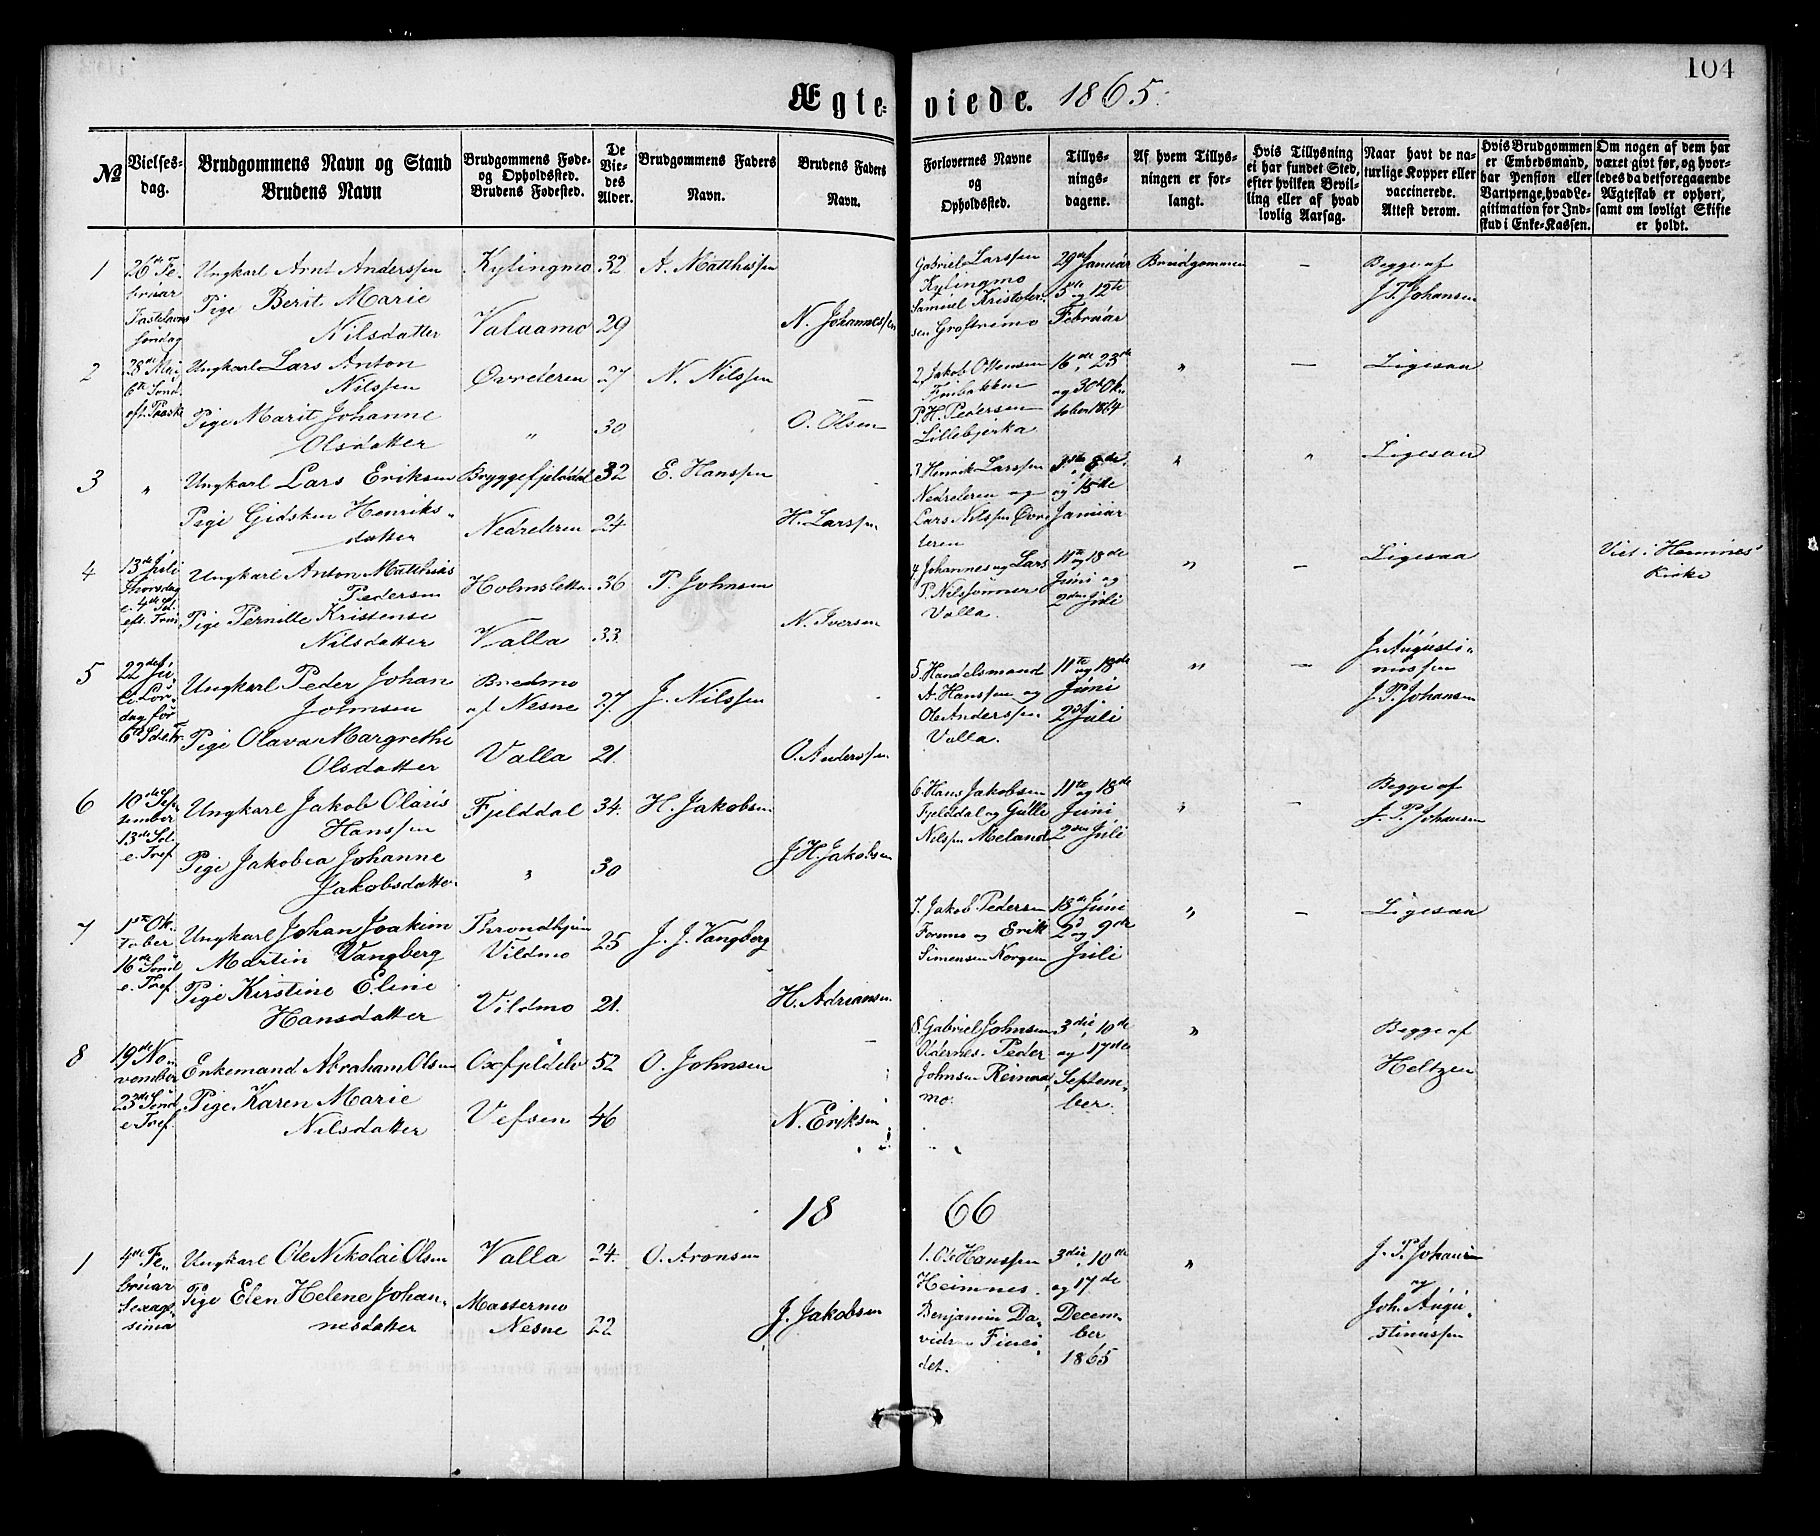 104
Ægteviede. 1865.
№
Vielsesdag.
Brudgommens Navn og Stand
Brudens Navn
Brudgommens Føde- og Opholdssted.
Brudens Fødested.
De Viedes Alder.
Brudgommens Faders Navn.
Brudens Faders Navn.
Forlovernes Navne og Opholdssted.
Tillysningsdagene.
Af hvem Tillysningen er forlangt.
Hvis Tillysning ei har fundet Sted, efter hvilken Bevilling eller af hvad lovlig Aarsag.
Naar havt de naturlige Kopper eller vaccinerede. Attest derom.
Hvis Brudgommen er Embedsmand, har Pension eller Vartpenge, hvad Legitimation for Indskud i Enke-Kassen.
Om nogen af dem har været givt før, og hvorledes da detforegaaende Ægteskab er ophørt, samt om lovligt Skifte er holdt.
1
26de Februar Fastelavns Søndag
Ungkarl Arnt Anderssen
Kylingmo 32 A. Matthissen
Pige Berit Marie
Nilsdatter
Valuamo 29 N. Johannessen
Gabriel Larssen
Kylingmo
Samuel Kristofersen Grostremo
29de Januar
5te og 12te
Februar
Brudgommen
—
Begge af
J. P. Johansen
2
28de Mai 6te Sønd. eft. Paaske
Ungkarl Lars Anton
Nilssen
Øvreleren 27 N. Nilssen
Pige Marit Johanne
Olsdatter
„ 30 O. Olsen
2, Jakob Ottomsen
P. H. Pedersen
Lillebjerka
16de, 23de
og 30te Oktober 1864
„
—
Ligesaa
3
„
Ungkarl Lars Eriksen
Bryggefjelddal 32 E. Hanssen
Pige Gidsken Henriksdatter
Nedreleren 24 H. Larssen
3. Henrik Larssen
Nedreleren og
Lars Nilssen Øvreleren
1ste, 8de,
og 15de
Januar
„
„
Ligesaa
4
13de Juli Thorsdag e. 4de Sd. eft. Trin.
Ungkarl Anton Matthias
Pedersen
Holmsletten 36 P. Johnsen
Pige Pernille Kristense
Nilsdatter
Valla 33. N. Iversen
4. Johannes og Lars
P. Nilssønner
Valla.
11te og 18de
Juni og
2den Juli
„
—
Ligesaa
Viet i Hemnes
Kirke
5
22de Juli Lørdag før 6te Sd. e. Tr.
Ungkarl Peder Johan
Johnsen
Bredmo
af Nesne 27. J. Nilssen
Pige Olava Margrethe
Olsdatter
Valla 21. O. Anderssen
5. Handelsmand
A. Hanssen og
Ole Anderssen
Valla.
11te og 18de
Juni
2d Juli
„
—
J. Augustinussen
J. P. Johansen
6
10de September 13de Sd. e. Tref.
Ungkarl Jakob Olaus
Hanssen
Fjelddal 34. H. Jakobsen
Pige Jakobea Johanne
Jakobsdatter
„ 30 J. H. Jakobsen
6. Hans Jakobsen
Fjelddal og Gulle
Nilssen Meland
11te og 18de
Juni
2den Juli
„
—
Begge af
J. P. Johansen
7
1ste Oktober 16de Sønd e. Tref.
Ungkarl Johan Joakim
Martin Vangberg
Throndhjem
Vildmo 25 J. J. Vangberg
Pige Kirstine Eline
Hansdatter
Vildmo 21. H. Adriansen
7. Jakob Pedersen
Formo og Erik
Simensen Norgen
18de Juni
2d og 9de
Juli
„
—
Ligesaa
8
19de November 23de Sønd e. Tref
Enkemand Abraham Olsen
Oxfjeldelv 52 O. Johnsen
Pige Karen Marie
Nilsdatter
Vefsen 46 N. Eriksen
8. Gabriel Johnsen
Peder
Johnsen Reinaamo.
3die, 10de
og 17de
September.
„
Begge af
Heltzen
1866
1
4de Februar Sexagesima
Ungkarl Ole Nikolai Olsen
Valla 24. O. Aronsen
Pige Elen Helene Johannesdatter
Massermo
Nesne 22 J. Jakobsen
1. Ole Hanssen
Heimnes.
Benjamin Davidsen Fineidet.
3die, 10de
og 17de
December
1865
„
J. P. Johansen
og
Joh. Augustinussen